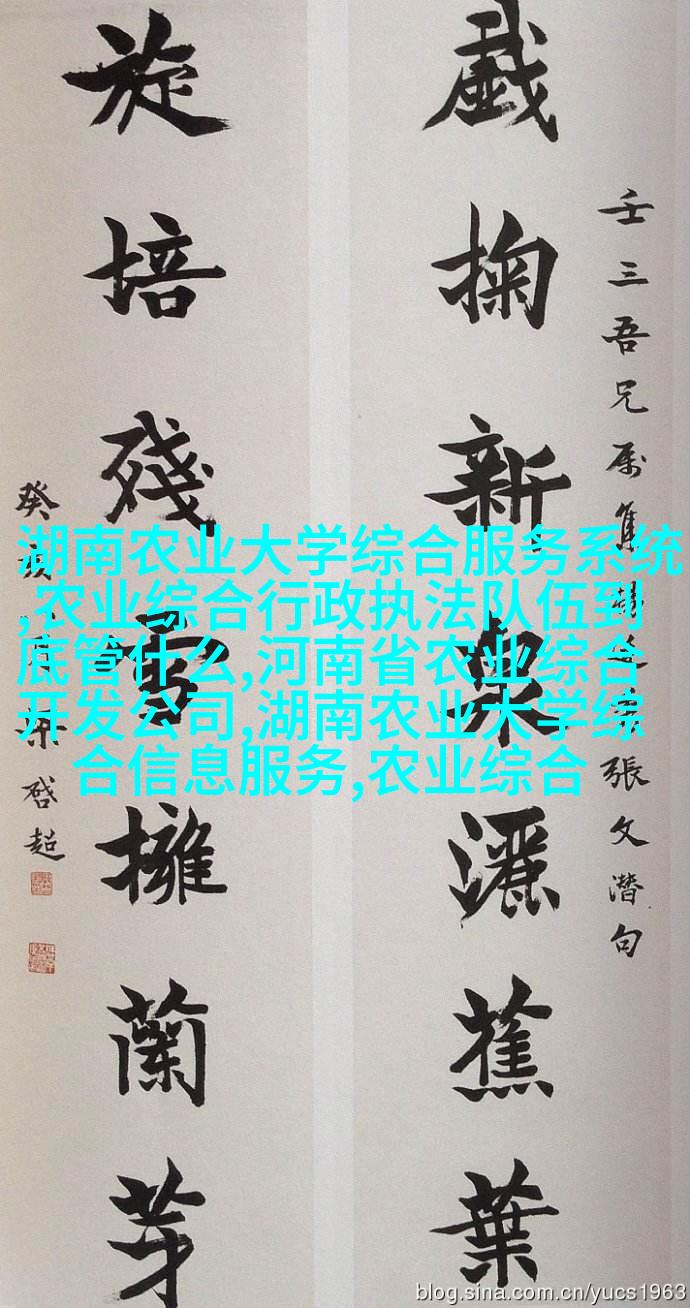 壬三吾兄属集張文潛句
戲掬新泉灑蕉葉
旋培殘雪擁蘭芽
癸梁啓超
湖南农业大学综合服务系统
,农业综合行政执法队伍到
底管什么,河南省农业综合
开发公司,湖南农业大学综
合信息服务,农业综合
blog.sina.com.cn/yucs1963